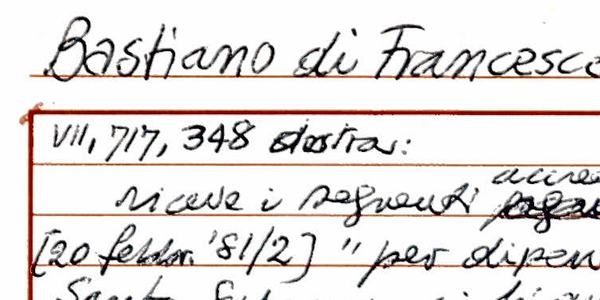 Bastiano di Francesco
VII, 717, 348 destra:
riceve i seguenti
[20 febbr. '81/2] " per dipen